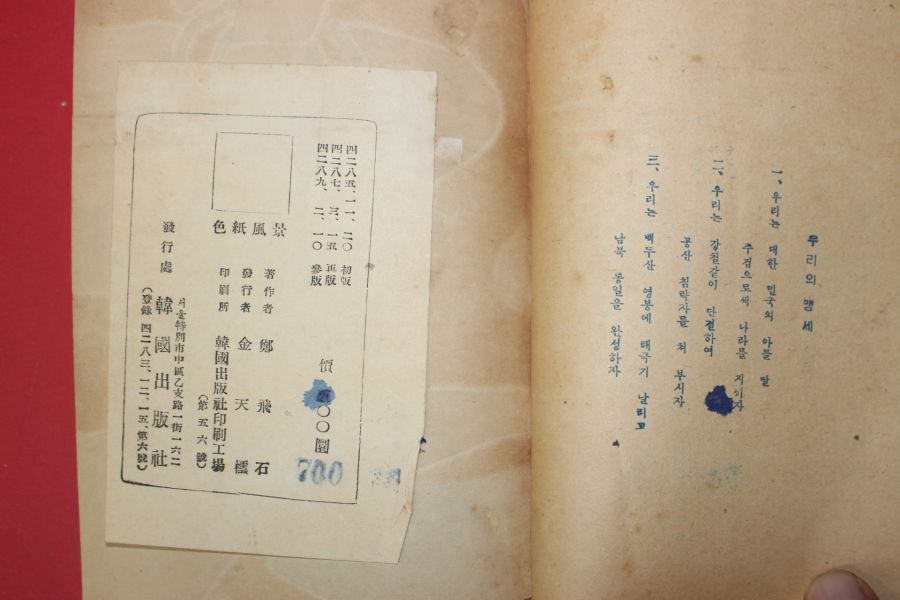 우리의 맹세
一、우리는 대한 민국의 아들 딸
주검으로써 나라를 지키자
二、우리는 강철같이 단결하여
공산 침략자를 처 부시자
三、우리는 백두산 영봉에 태극기 날리고
남북 통일을 완성하자
四二八五、一一、二〇 初版
四二八七、三、一五 再版
四二八九、二、一〇 參版
價 〇〇圜
700
色紙風景
著作者 鄭飛石
發行者 金天
印刷所 韓國出版社印刷工場
(第五六號)
서울特別市中區乙支路一街一六二
發行處 韓國出版社
(登錄四二八三、一二、一五、第六號)